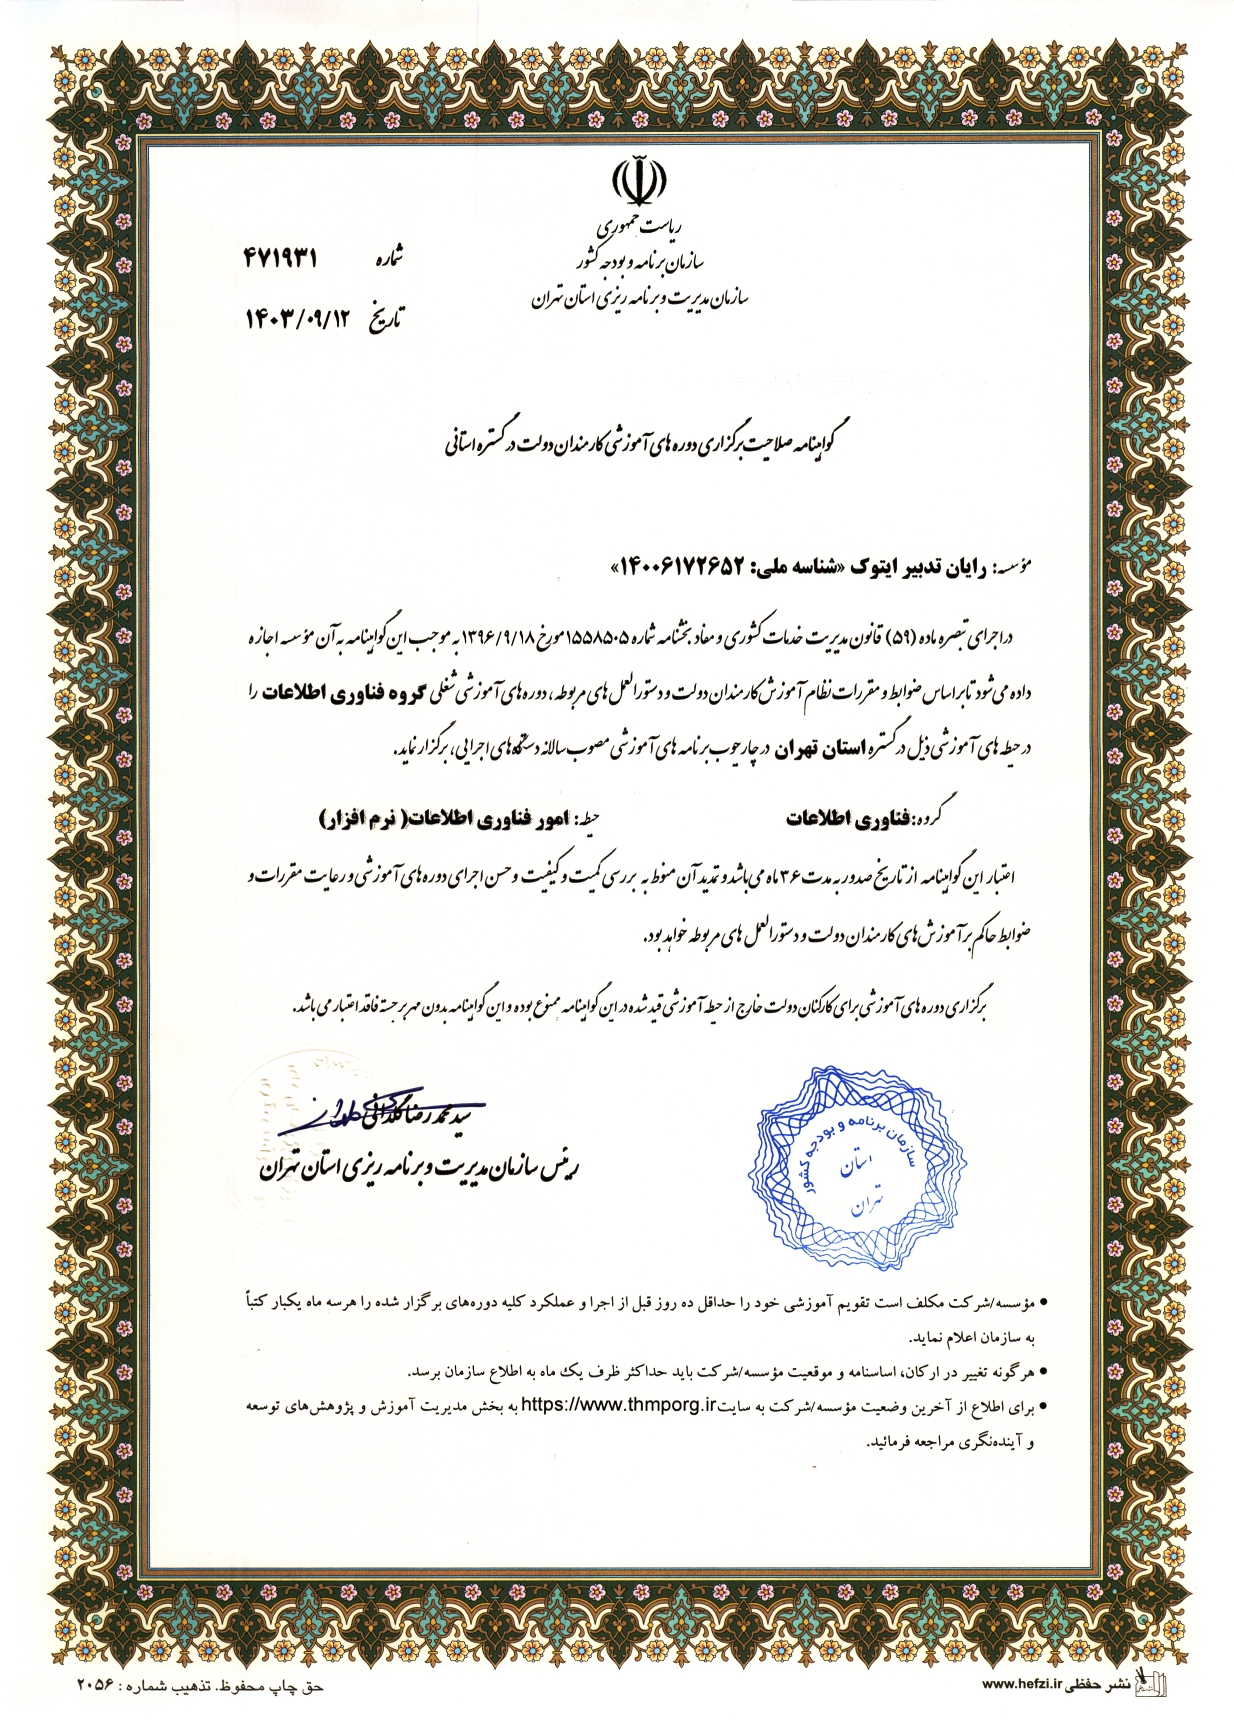 ریاست جمهوری
سازمان برنامه و بودجه کشور
سازمان مدیریت و برنامه ریزی استان تهران
شماره ۴۷۱۹۳۱
تاریخ ۱۴۰۳/۰۹/۱۲
گواهینامه صلاحیت برگزاری دوره های آموزشی کارمندان دولت در گستره استانی
مؤسسه: رایان تدبیر ایتوک «شناسه ملی: ۱۴۰۰۶۱۷۲۶۵۲»
در اجرای تبصره ماده (۵۹) قانون مدیریت خدمات کشوری و مفاد بخشنامه شماره ۱۵۵۸۵۰۵ مورخ ۱۳۹۶/۹/۱۸ به موجب این گواهینامه به آن مؤسسه اجازه
داده می شود تا بر اساس ضوابط و مقررات نظام آموزش کارمندان دولت و دستورالعمل های مربوطه، دوره های آموزشی شغلی گروه فناوری اطلاعات را
در حیطه های آموزشی ذیل در گستره استان تهران در چارچوب برنامه های آموزشی مصوب سالانه دستگاه های اجرایی، برگزار نماید.
گروه: فناوری اطلاعات حیطه: امور فناوری اطلاعات( نرم افزار)
اعتبار این گواهینامه از تاریخ صدور به مدت ۳۶ ماه می باشد و تمدید آن منوط به بررسی کمیت و کیفیت و حسن اجرای دوره های آموزشی و رعایت مقررات و
ضوابط حاکم بر آموزش های کارمندان دولت و دستورالعمل های مربوطه خواهد بود.
برگزاری دوره های آموزشی برای کارکنان دولت خارج از حیطه آموزشی قید شده در این گواهینامه ممنوع بوده و این گواهینامه بدون مهر برجسته فاقد اعتبار می باشد.
سازمان برنامه و بودجه کشور
استان
تهران
سید محمدرضا گلدانی
رئیس سازمان مدیریت و برنامه ریزی استان تهران
• مؤسسه/شرکت مکلف است تقویم آموزشی خود را حداقل ده روز قبل از اجرا و عملکرد کلیه دوره‌های برگزار شده را هرسه ماه یکبار کتباً
به سازمان اعلام نماید.
• هرگونه تغییر در ارکان، اساسنامه و موقعیت مؤسسه/شرکت باید حداکثر ظرف یک ماه به اطلاع سازمان برسد.
• برای اطلاع از آخرین وضعیت مؤسسه/شرکت به سایت https://www.thmporg.ir به بخش مدیریت آموزش و پژوهش‌های توسعه
و آینده‌نگری مراجعه فرمائید.
نشر حفظی www.hefzi.ir
حق چاپ محفوظ. تذهیب شماره : ۲۰۵۶